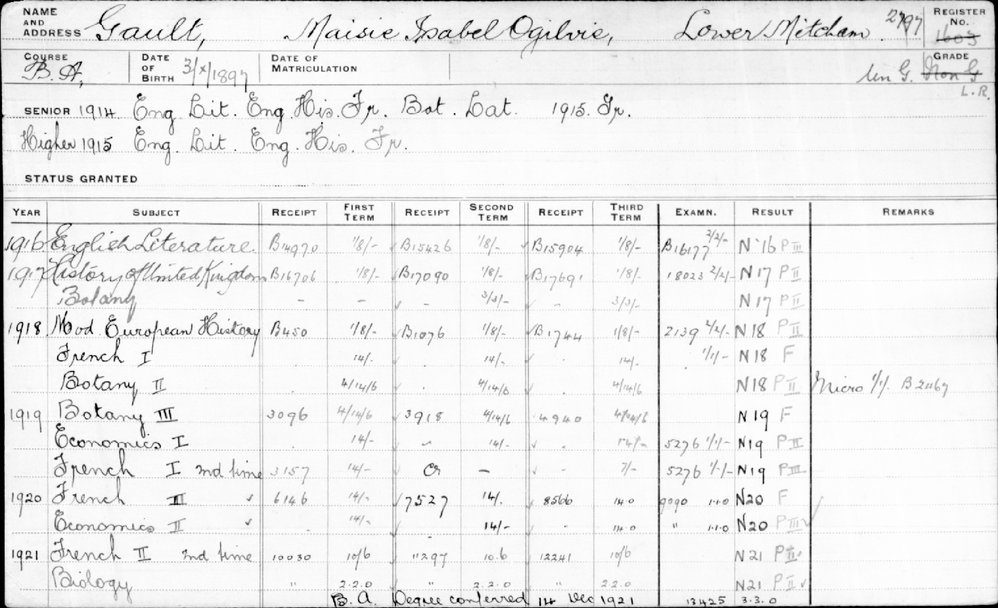 NAME AND ADDRESS Gault, Maisie Isabel Ogilvie, Lower Mitcham. 2797 REGISTER No. 1603
COURSE B.A, DATE OF BIRTH 3/X/1897 DATE OF MATRICULATION Un G. GRADE Non G L.R.
SENIOR 1914 Eng Lit. Eng His. Fr. Bot. Lat. 1915. Fr.
Higher 1915 Eng Lit. Eng. His. Fr.
STATUS GRANTED
YEAR SUBJECT RECEIPT FIRST TERM RECEIPT SECOND TERM RECEIPT THIRD TERM EXAMN. RESULT REMARKS
1916 English Literature. B14970 1/8/- B15426 1/8/- B15904 1/8/- B16177 2/2/- N'16 P III
1917 History of United Kingdom B16706 1/8/- B17090 1/8/- B17691 1/8/- 18023 2/2/- N 17 P II
Botany - - - 3/3/- - 3/3/- N 17 P II
1918 Mod. European History B450 1/8/- B1076 1/8/- B1744 1/8/- 2139 2/2/- N18 P II
French I . 14/- 14/- . 14/- 1/1/- N18 F
Botany II . 4/14/6 . 4/14/6 . 4/14/6 N18 P II Micro 1/1/. B 21167
1919 Botany III 3096 4/14/6 3918 4/14/6 4940 4/14/6 N19 F
Economics I . 14/- " 14/- . 14/- 5276 1/1/- N19 P III
French I 2nd time 3157 14/- Cr - 7/- 5276 1/1/- N19 P III
1920 French II 6146 14/- 7527 14/. 8566 14.0 9090 1.1.0 N20 F
Economics II 14/- . 14/- . 14.0 " 1.1.0 N20 P III
1921 French II 2nd time 10030 10/6 11297 10.6 12241 10/6 N21 P III
Biology " 2.2.0 " 2.2.0 " 2.2.0 N21 P II
B.A. Degree conferred 14 Dec 1921 13425 3.3.0